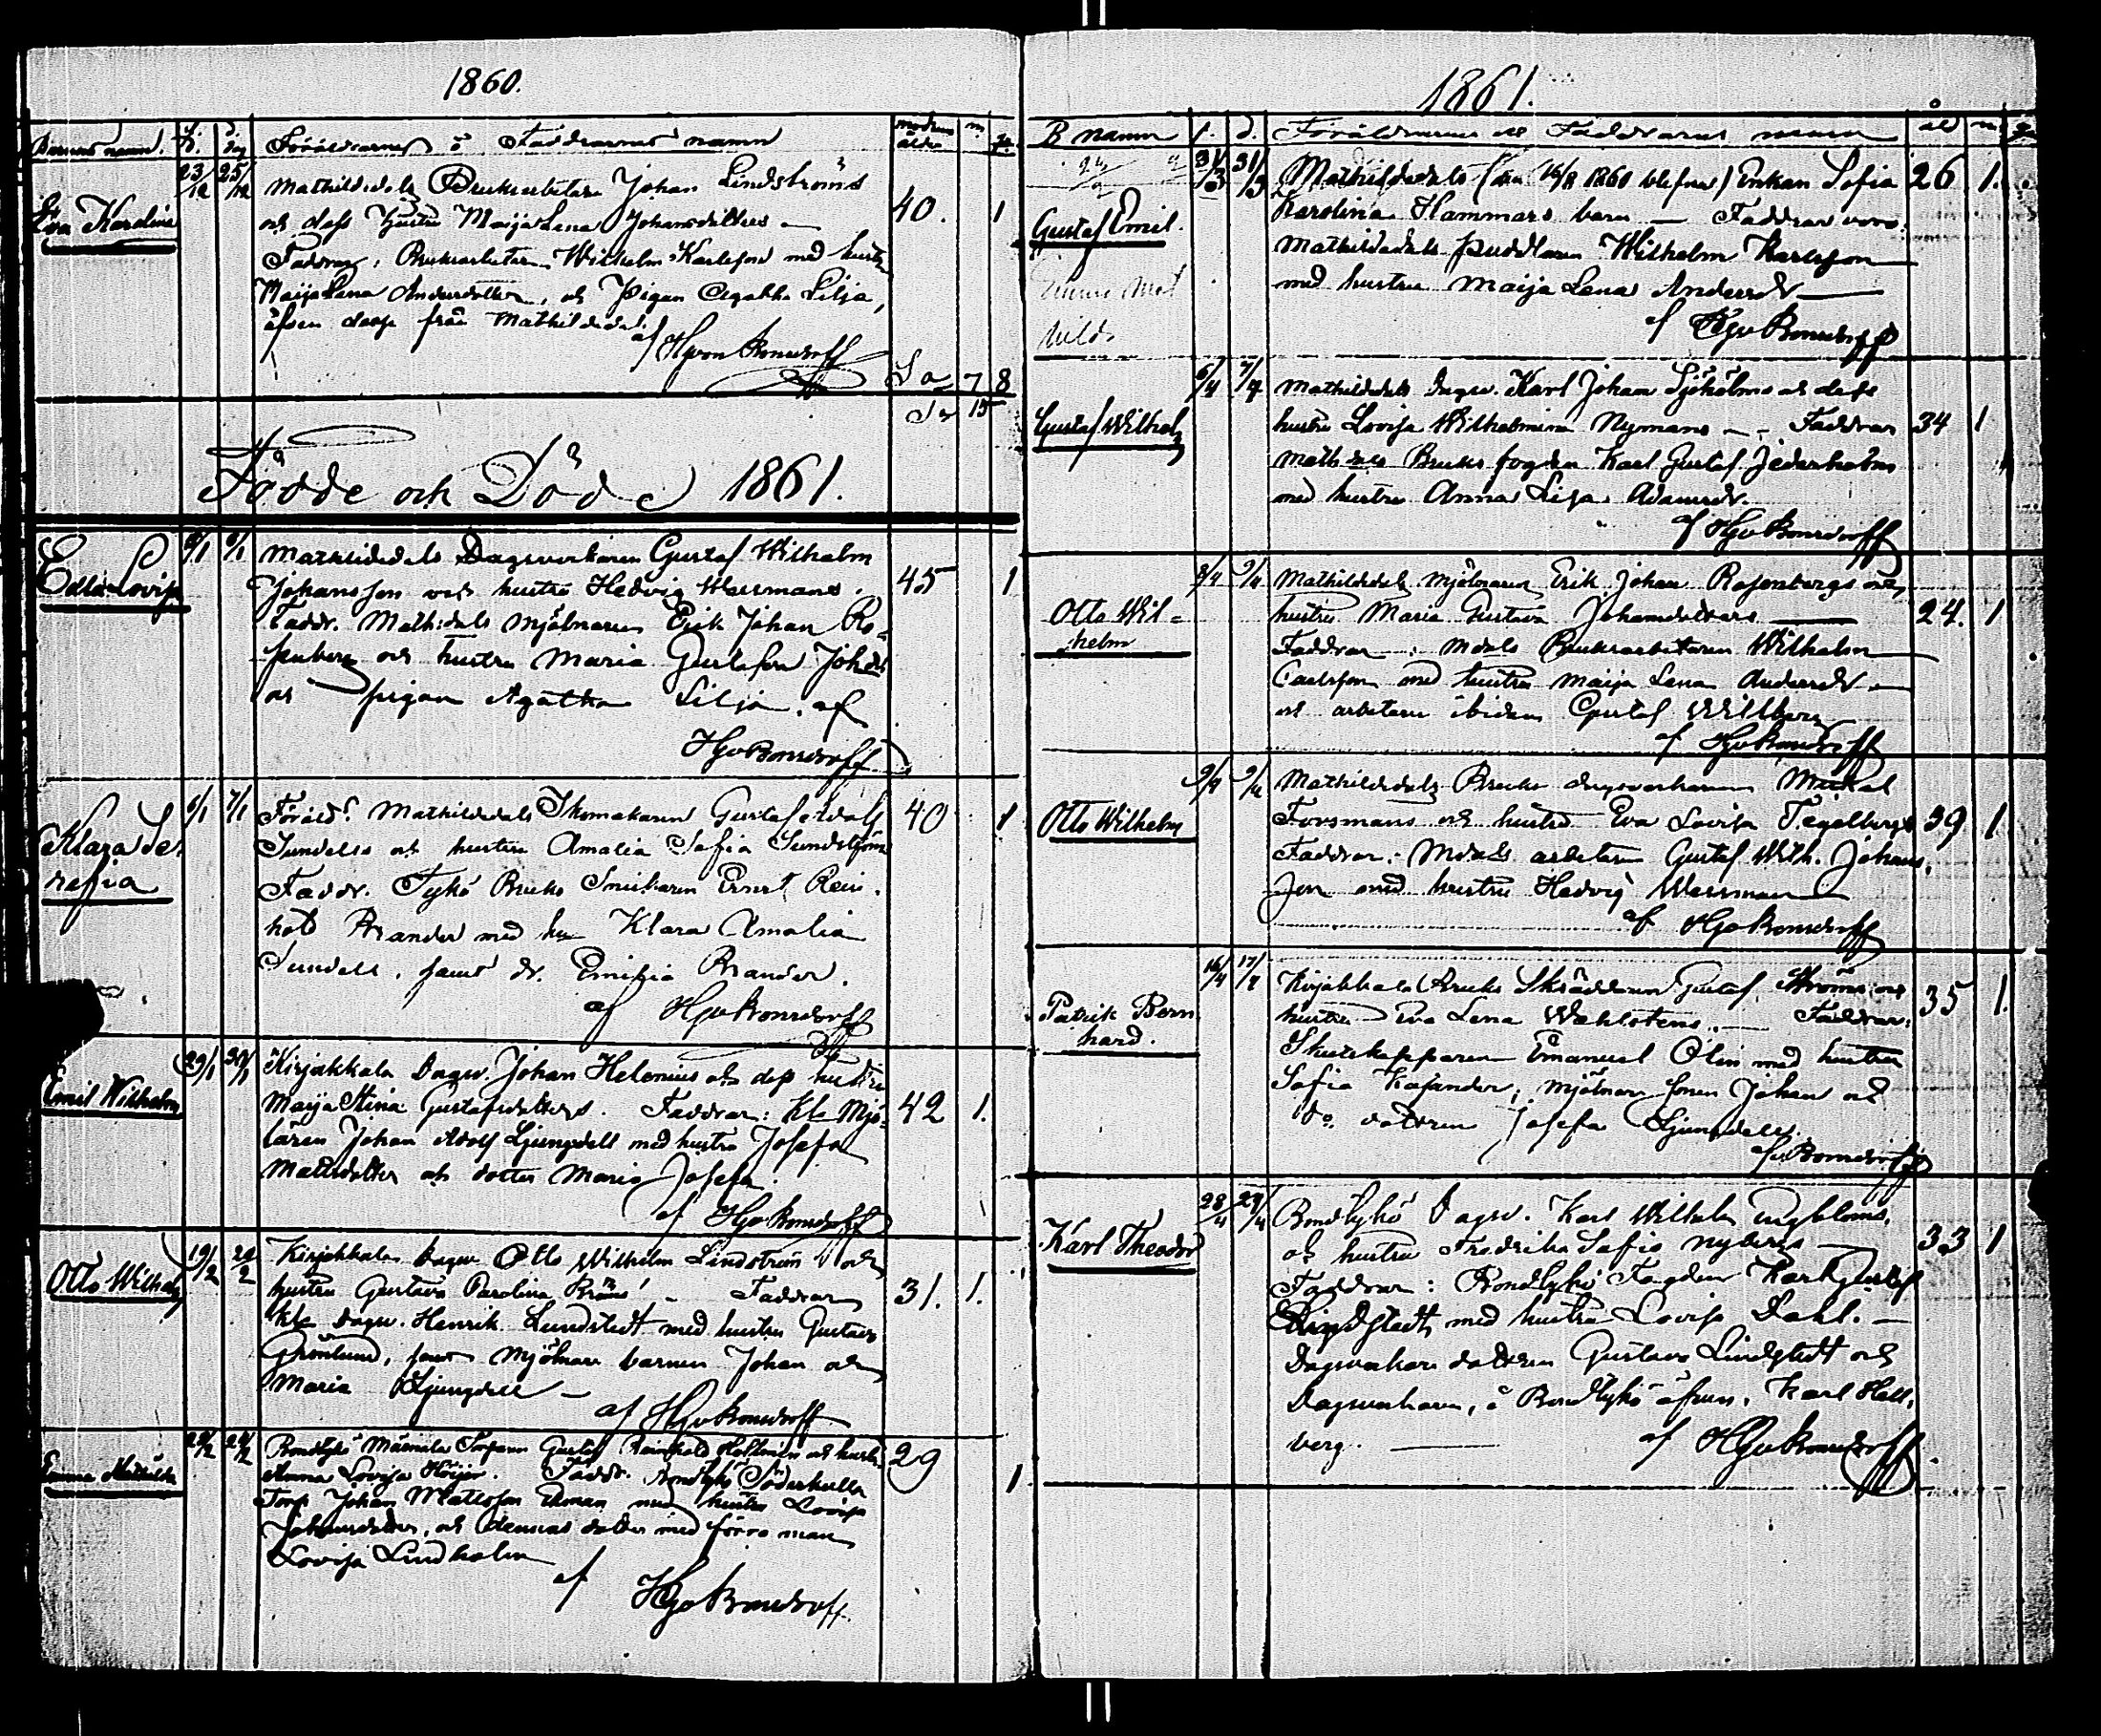 1860.
Barnets namn. f. d. Föräldrarnes o Faddrarnas namn modrens ålder m. qv.
Eva Karolina 23/12 25/12 Mathildedals Bruksarbetare Johan Lindströms 40. 1
och dess hustru Maija Lena Johansdotters
Faddrar, Bruksarbetaren Wilhelm Karlsson med hustru
Maija Lena Andersdotter, och Pigan Agatha Lilja,
äfven desse från Mathildedal.
af HGvon Bonsdorff
Sa 7 8
Sa 15
Födde och Döde 1861.
Edla Lovisa 6/1 Mathildedals Dagsverkaren Gustaf Wilhelm
Johansson och hustru Hedvig Wessmans. 45 1
Faddr. Math:dals Mjölnaren Erik Johan Ro-
senberg och hustru Maria Gustafva Johsdr
och pigan Agatha Lilja. af
HGvBonsdorff
Klara Se- 6/1 7/1 Föräld: Mathildedals Skomakaren Gustaf Adolf 40 1
rafia Sundells och hustru Amalia Sofia Sundström
Faddr. Tykö Bruks Smeden Ernst Rein-
hold Brander med hu Klara Amalia
Sundell, samt dr. Emilia Brander.
af HGvBonsdorff
Emil Wilhelm 29/1 30/1 Kirjakkala Dagsv. Johan Helenius och dess hustru
Maija Stina Gustafsdotters. Faddrar: Kla Mjö- 42 1.
laren Johan Adolf Ljungdell med hustru Josefa
Matsdotter och dotter Maria Josefa.
af HGvBonsdorff
Otto Wilhelm 19/2 24/2 Kirjakkala Dagsv Otto Wilhelm Lindström och
hustru Gustava Carolina Bröms - Faddrar 31. 1.
Kla Dagsv. Henrik Lundstedt med hustru Gustava
Grönlund, samt Mjölnare barnen Johan och
Maria Ljungdell -
af HGvBonsdorff
Emma Mathilda Bondtykö Torparn Gustaf Reinhold och hustr. 29
Anna Lovisa Höijer. Faddr. Bondtykö Söderkulla 1
Torp Johan Mattsson med hustru Lovisa
Johansdotter, och dennas dotter med förra man
Lovisa Lindholm
af HGvBonsdorff
1861.
B namn f. d. Föräldrarnes och Faddrarnes namn åld m. q
Gustaf Emil. 31/3 31/3 Mathildedals (den 16/8 1860 blefne) Enkan Sofia 26 1.
Karolina Hammars barn — Faddrar voro
Mathildedals puddlaren Wilhelm Karlsson
med hustru Maija Lena Andersdr
af HGvBonsdorff
Gustaf Wilhelm 6/4 7/4 Mathildedals Dagsv. Karl Johan Sjöholms och dess
hustru Lovisa Wilhelmina Nymans - Faddrar 34 1
Mathdals Bruks fogden Karl Gustaf Jederholm
med hustru Anna Lisa Adamsdr.
af HGvBonsdorff
Otto Wil- 8/4 9/4 Mathildedals Mjölnaren Erik Johan Rosenbergs och
helm hustru Maria Gustava Johansdotters 24. 1
Faddrar: Mdals Bruksarbetaren Wilhelm
Carlsson med hustru Maija Lena Andersdr
och arbetaren ibidem Gustaf Willberg
af HGvBonsdorff
Otto Wilhelm 9/4 9/4 Mathildedals Bruks dagsverkaren Mickel
Forsmans och hustru Eva Lovisa Tegelbergs 39 1.
Faddrar: Mdals arbetaren Gustaf Wilh. Johans-
son med hustru Hedvig Wessman
af HGvBonsdorff
Patrik Bern 16/4 17/4 Kirjakkala Bruks Skräddaren Gustaf Ströms och 35 1.
hard. hustru Eva Lena Wahlstens. — Faddrar:
Skutskepparen Emanuel Olin med hustru
Sofia Kajander; Mjölnare sonen Johan och
do. dottren Josefa Ljungdell.
af Bonsdorff
Karl Theodor 28/4 29/4 Bondtykö Dagsv. Karl Wilhelm Engbloms,
och hustru Fredrika Sofia Nybergs 33 1
Faddrar: Bondtykö Fogden Karl Gustaf
Lindstedt med hustru Lovisa Dahl. —
Dagsverkare dottren Gustava Lindstedt och
Dagsverkaren, å Bondtykö äfven, Karl Hell-
berg. — af HGvBonsdorff